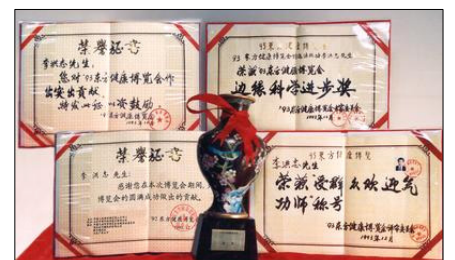 荣誉证书
李洪志先生：
您对'93东方健康博览会作
出突出贡献，
特发此证 以资鼓励
'93东方健康博览会
1993年12月
93东方健康博览
荣获'93东方健康博览会
边缘科学进步奖
'93东方健康博览会
1993年12月
荣誉证书
李洪志先生：
感谢您在本次博览会期间，
博览会的圆满成功做出的贡献。
'93东方健康博览会
93东方健康博览
李洪志先生
荣获受群众欢迎气
功师称号
'93东方健康博览会评审委员会
1993年12月